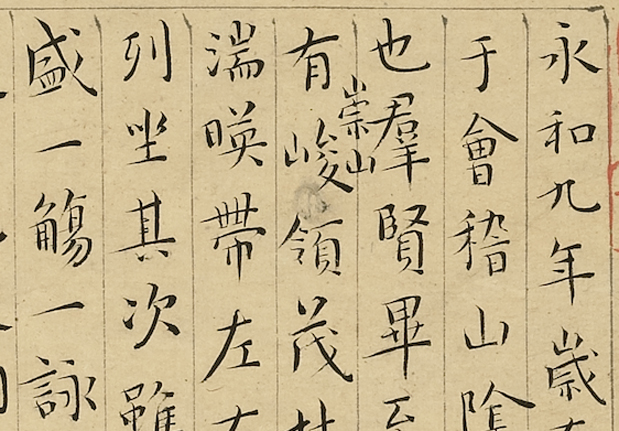 永和九年歲
于會稽山陰
也羣賢畢至
有崇山峻領茂林
湍暎帶左右
列坐其次雖
盛一觴一詠